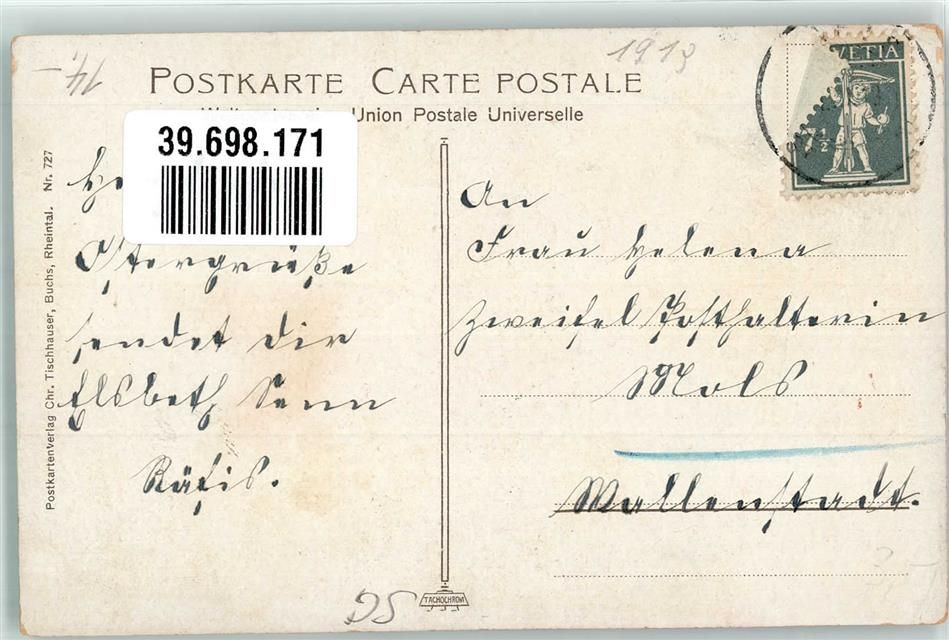 14,-
1913
POSTKARTE CARTE POSTALE
Union Postale Universelle
HELVETIA
7 1/2
39.698.171
Postkartenverlag Chr. Tischhauser, Buchs, Rheintal. Nr. 727
Ostergrüße
sendet dir
Elsbeth Senn
Räfis.
An
Frau Helena
Zweifel Posthalterin
Mols
Wallenstadt.
TACHOCHROM